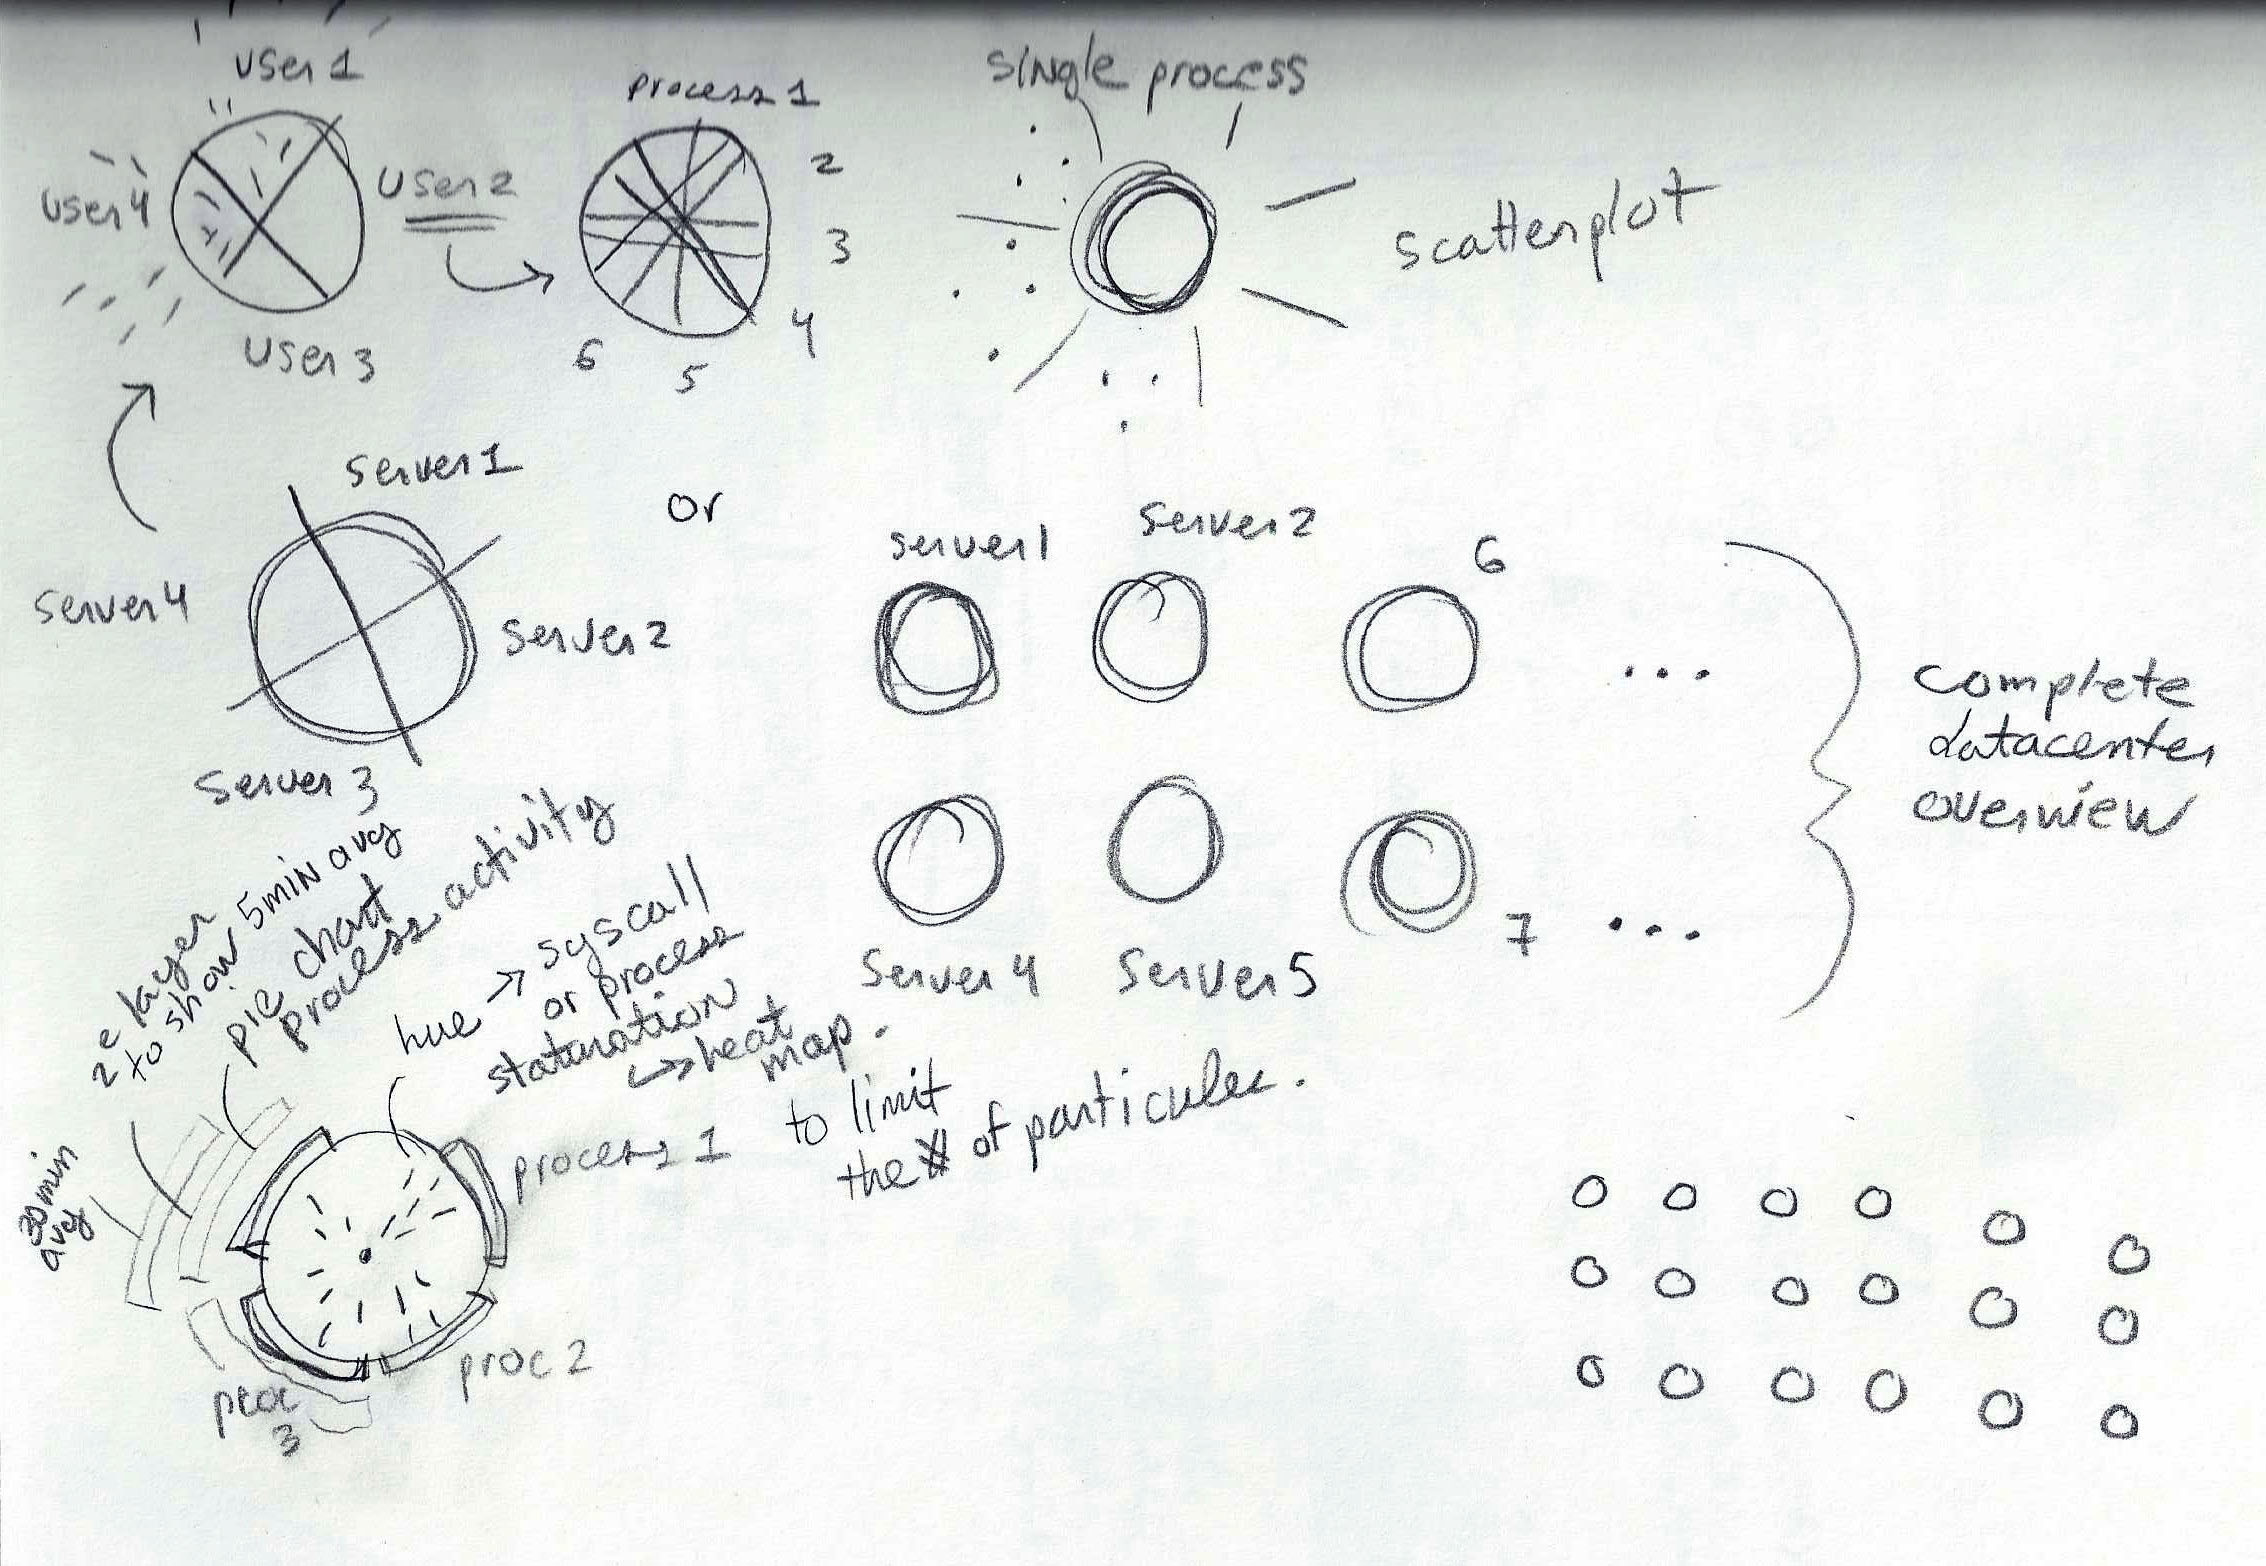 user 1
user 4
user 2
user 3
process 1
2
3
4
5
6
single process
scatterplot
server 1
server 4
server 2
server 3
or
server 1
server 2
6
...
server 4
server 5
7
...
complete
datacenter
overview
2e layer
to show 5min avg
pie chart
process activity
hue → syscall
or process
staturation
↳ heat
map.
to limit
the # of particules.
30min
avg
process 1
proc 2
proc
3